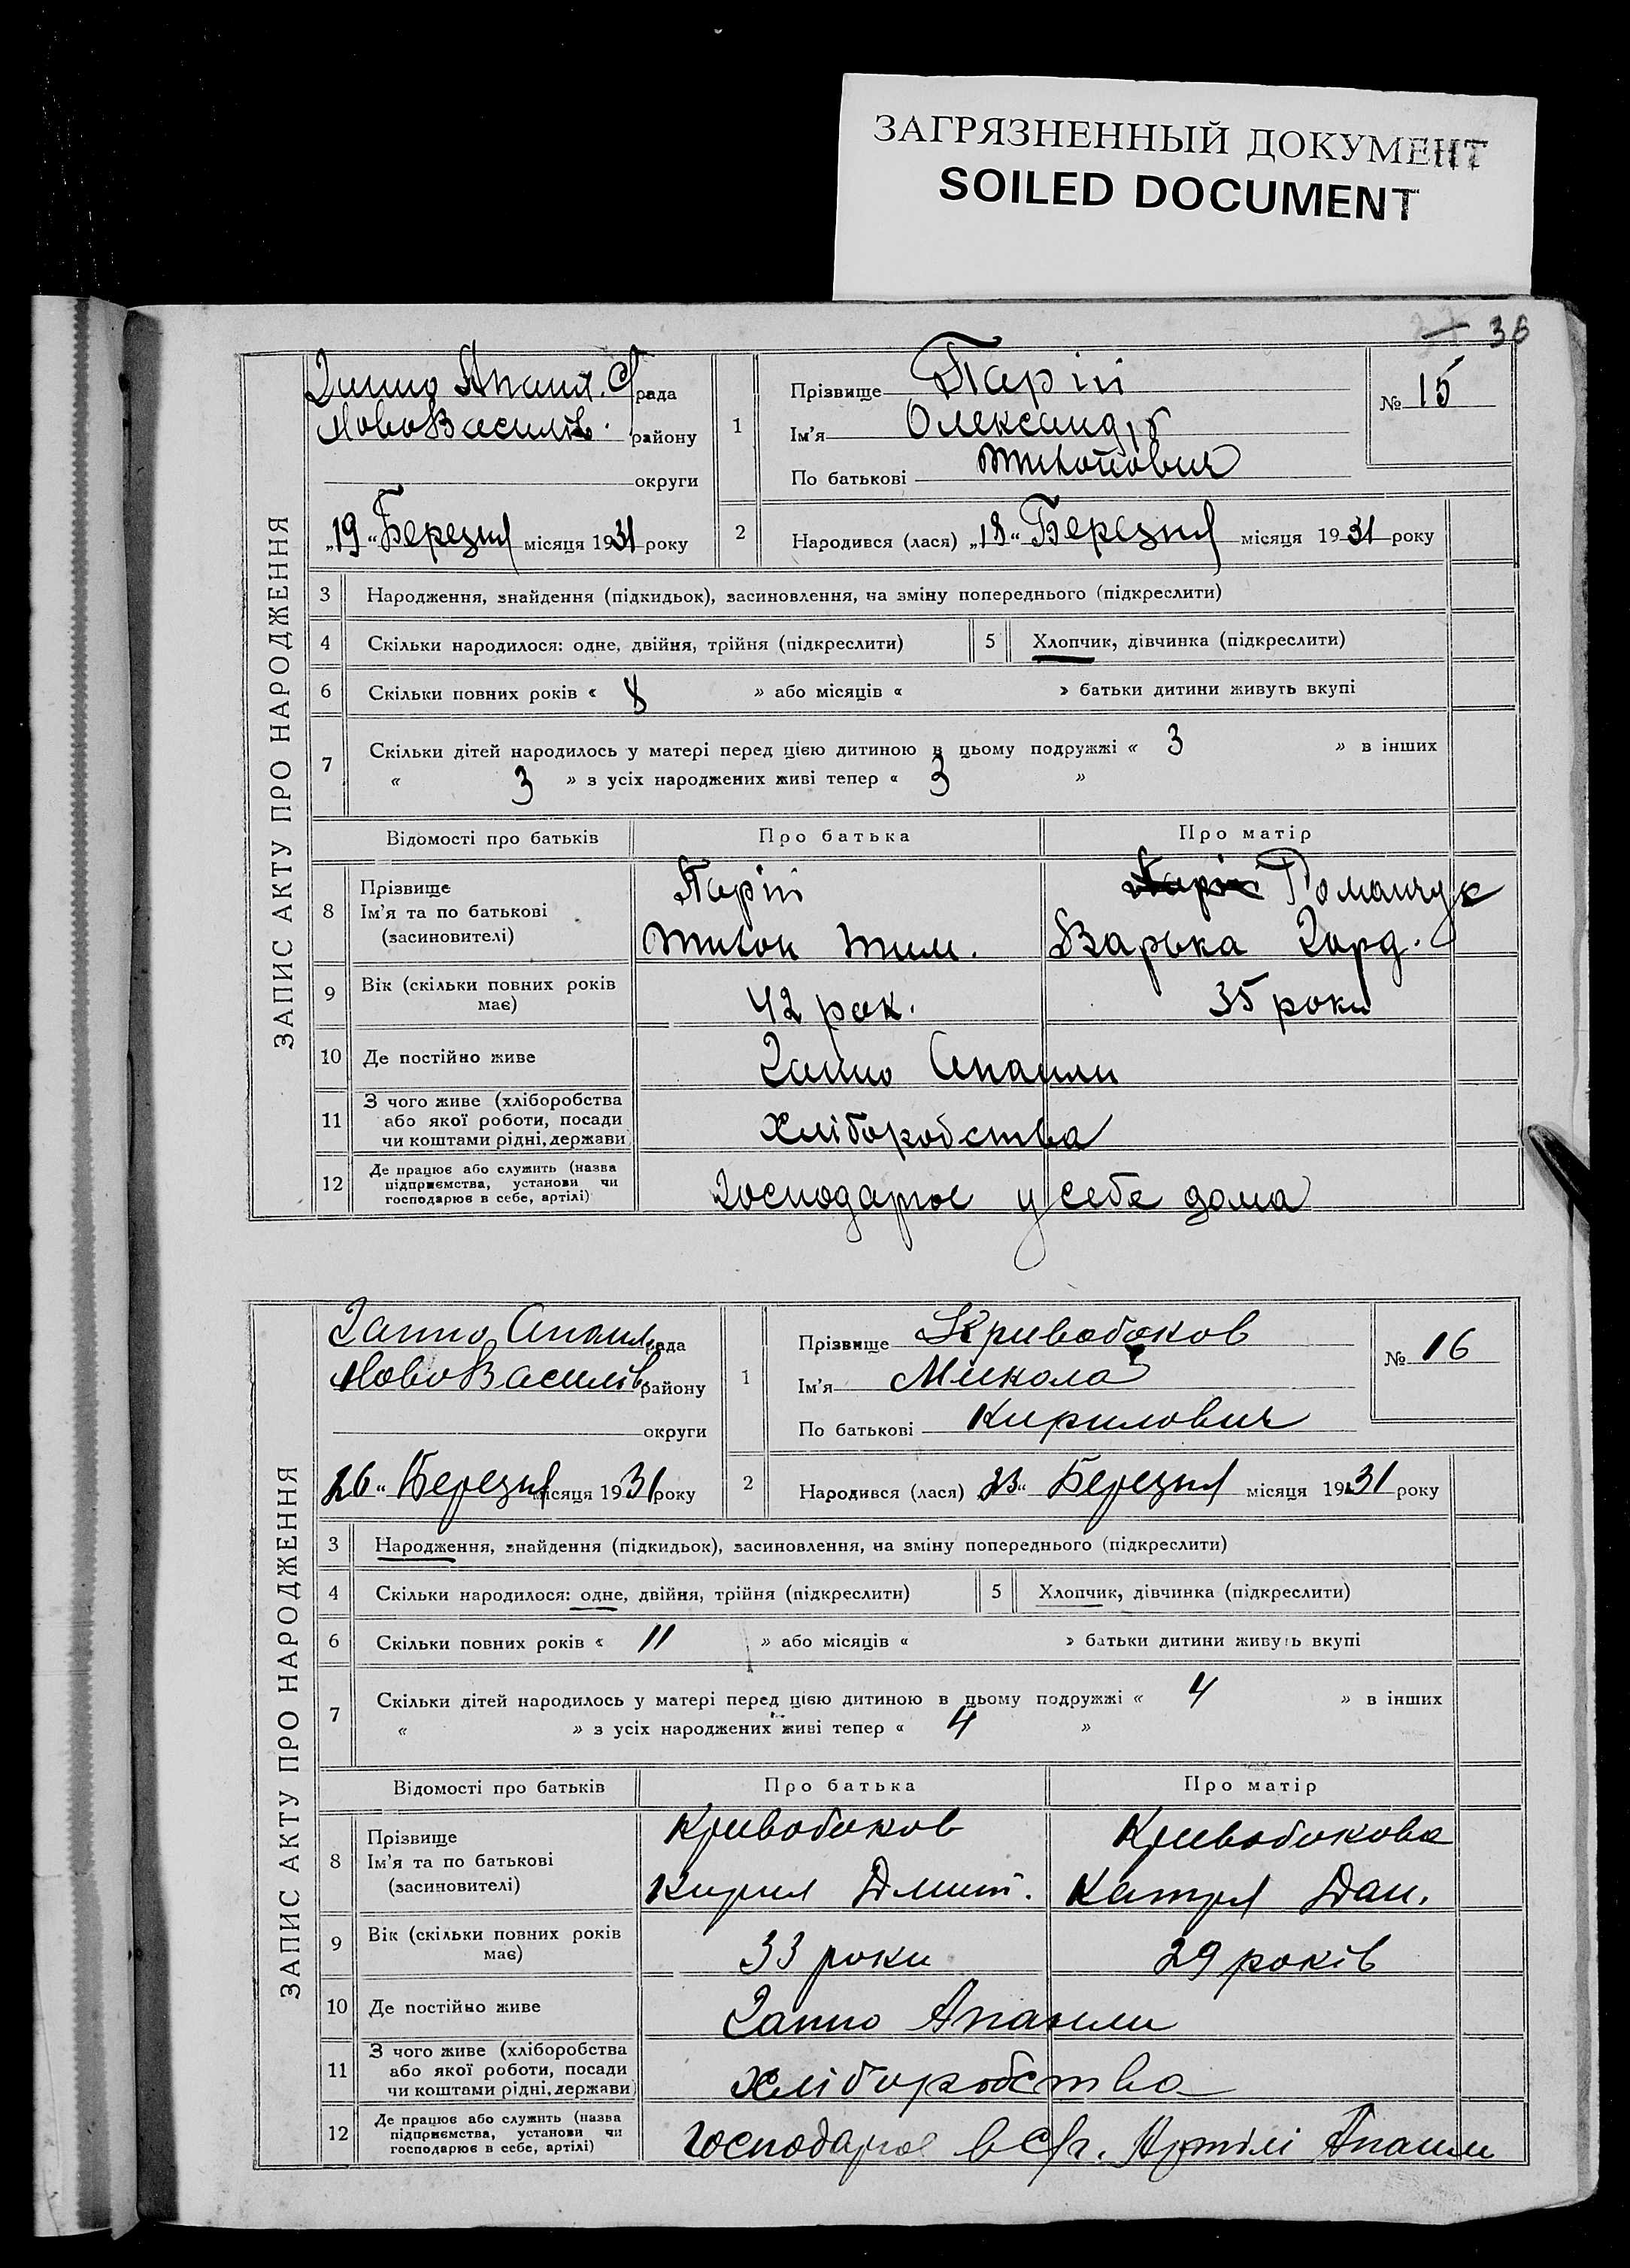 ЗАГРЯЗНЕННЫЙ ДОКУМЕНТ
SOILED DOCUMENT
36
ЗАПИС АКТУ ПРО НАРОДЖЕННЯ
рада
НовоВасилів. району
округи
„19“ Березня місяця 1931 року
1
Прізвище Парій
Ім'я Олександр
По батькові Тихонович
№ 15
2
Народився (лася) „18“ Березня місяця 1931 року
3 Народження, знайдення (підкидьок), засиновлення, на зміну попереднього (підкреслити)
4 Скільки народилося: одне, двійня, трійня (підкреслити) 5 Хлопчик, дівчинка (підкреслити)
6 Скільки повних років « 8 » або місяців « » батьки дитини живуть вкупі
7 Скільки дітей народилось у матері перед цією дитиною в цьому подружжі « 3 » в інших
« 3 » з усіх народжених живі тепер « 3 »
Відомості про батьків Про батька Про матір
8 Прізвище
Ім'я та по батькові
(засиновителі)
Парій
Тихон Тим.
Романчук
Варька Горд.
9 Вік (скільки повних років
має)
42 рок. 35 роки
10 Де постійно живе Ганно Апанли
11 З чого живе (хліборобства
або якої роботи, посади
чи коштами рідні, держави)
Хліборобства
12 Де працює або служить (назва
підприємства, установи чи
господарює в себе, артілі)
Господарює у себе дома
ЗАПИС АКТУ ПРО НАРОДЖЕННЯ
Ганно Апанл. рада
НовоВасилів. району
округи
26“ Березня місяця 1931 року
1
Прізвище Кривобоков
Ім'я Микола
По батькові Кирилович
№ 16
2
Народився (лася) 23“ Березня місяця 1931 року
3 Народження, знайдення (підкидьок), засиновлення, на зміну попереднього (підкреслити)
4 Скільки народилося: одне, двійня, трійня (підкреслити) 5 Хлопчик, дівчинка (підкреслити)
6 Скільки повних років « 11 » або місяців « » батьки дитини живуть вкупі
7 Скільки дітей народилось у матері перед цією дитиною в цьому подружжі « 4 » в інших
« » з усіх народжених живі тепер « 4 »
Відомості про батьків Про батька Про матір
8 Прізвище
Ім'я та по батькові
(засиновителі)
Кривобоков
Кирил Дмит.
Кривобокова
Катря Дан.
9 Вік (скільки повних років
має)
33 роки 29 років
10 Де постійно живе Ганно Апанли
11 З чого живе (хліборобства
або якої роботи, посади
чи коштами рідні, держави)
Хліборобства
12 Де працює або служить (назва
підприємства, установи чи
господарює в себе, артілі)
Господарює в с/г. Артілі Апанли